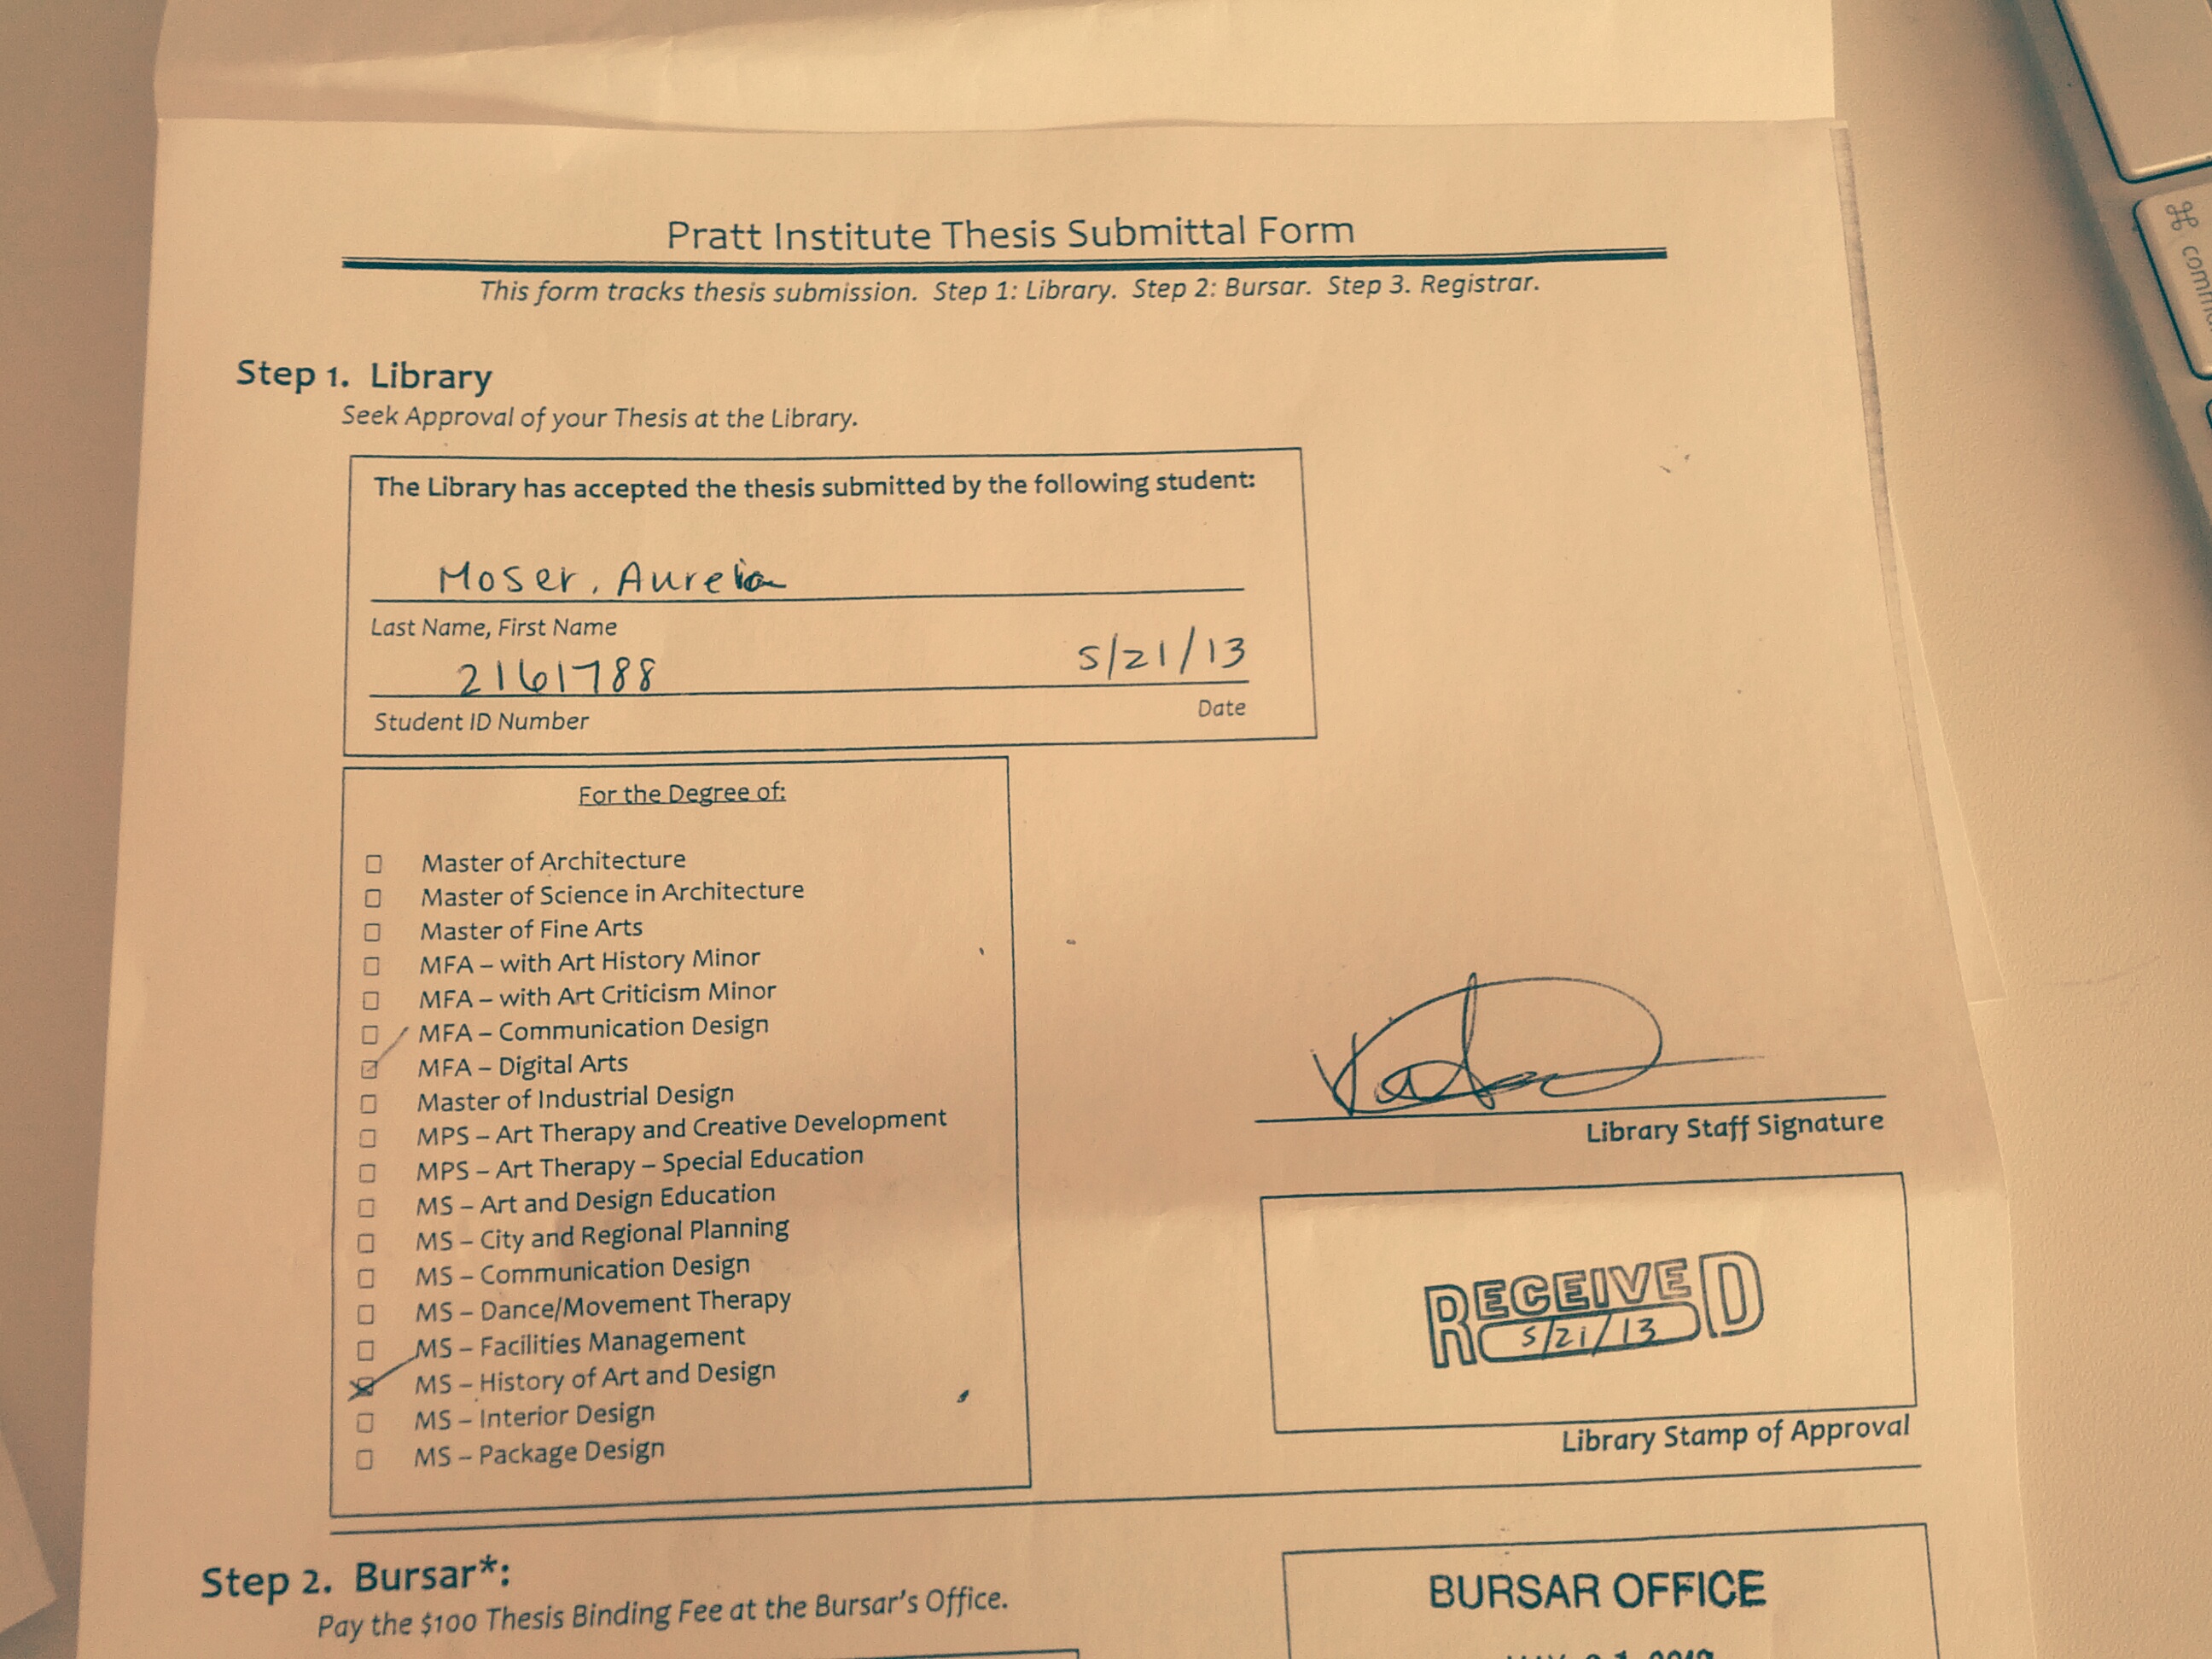 Pratt Institute Thesis Submittal Form
This form tracks thesis submission. Step 1: Library. Step 2: Bursar. Step 3. Registrar.
Step 1. Library
Seek Approval of your Thesis at the Library.
The Library has accepted the thesis submitted by the following student:
Moser, Aurelia
Last Name, First Name
2161788 5/21/13
Student ID Number Date
For the Degree of:
Master of Architecture
Master of Science in Architecture
Master of Fine Arts
MFA – with Art History Minor
MFA – with Art Criticism Minor
MFA – Communication Design
MFA – Digital Arts
Master of Industrial Design
MPS – Art Therapy and Creative Development
MPS – Art Therapy – Special Education
MS – Art and Design Education
MS – City and Regional Planning
MS – Communication Design
MS – Dance/Movement Therapy
MS – Facilities Management
MS – History of Art and Design
MS – Interior Design
MS – Package Design
Library Staff Signature
RECEIVED
5/21/13
Library Stamp of Approval
Step 2. Bursar*:
Pay the $100 Thesis Binding Fee at the Bursar's Office.
BURSAR OFFICE
⌘